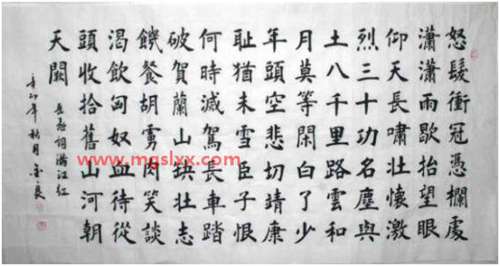 怒髮衝冠憑欄處
瀟瀟雨歇抬望眼
仰天長嘯壯懷激
烈三十功名塵與
土八千里路雲和
月莫等閑白了少
年頭空悲切靖康
耻猶未雪臣子恨
何時滅駕長車踏
破賀蘭山缺壯志
饑餐胡虜肉笑談
渴飲匈奴血待從
頭收拾舊山河朝
天闕
岳飛詞滿江紅
辛卯年秋月
www.mgslxx.com